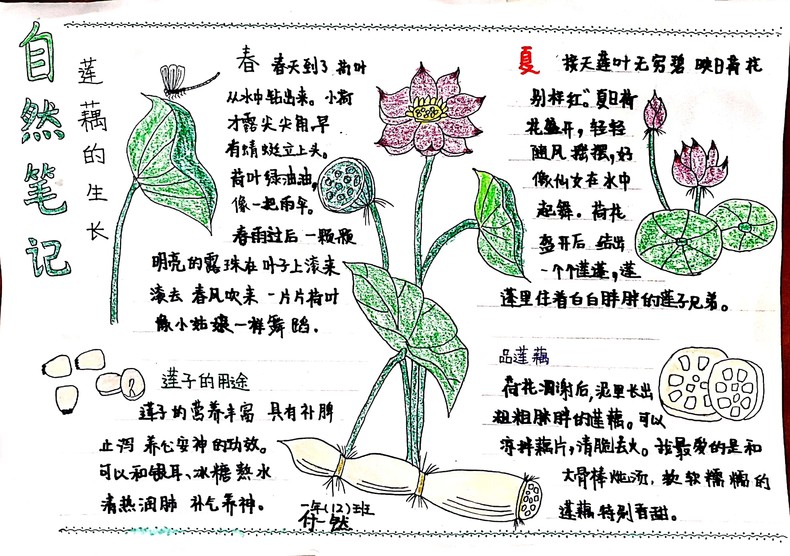 自然笔记
莲藕的生长
春 春天到了 荷叶
从水中钻出来。小荷
才露尖尖角,早
有蜻蜓立上头。
荷叶绿油油,
像一把雨伞。
春雨过后 一颗颗
明亮的露珠在叶子上滚来
滚去 春风吹来 一片片荷叶
像小姑娘一样舞蹈.
夏 接天莲叶无穷碧 映日荷花
别样红。”夏日荷
花盛开,轻轻
随风摇摆,好
像仙女在水中
起舞.荷花
盛开后 结出
一个个莲蓬,莲
蓬里住着白白胖胖的莲子兄弟。
莲子的用途
莲子的营养丰富 具有补脾
止泻 养心安神的功效。
可以和银耳、冰糖熬水
清热润肺 补气养神。
品莲藕
荷花凋谢后,泥里长出
粗粗胖胖的莲藕。可以
凉拌藕片,清脆去火。我最爱的是和
大骨棒炖汤,软软糯糯的
莲藕特别香甜。
一年(12)班
付一然